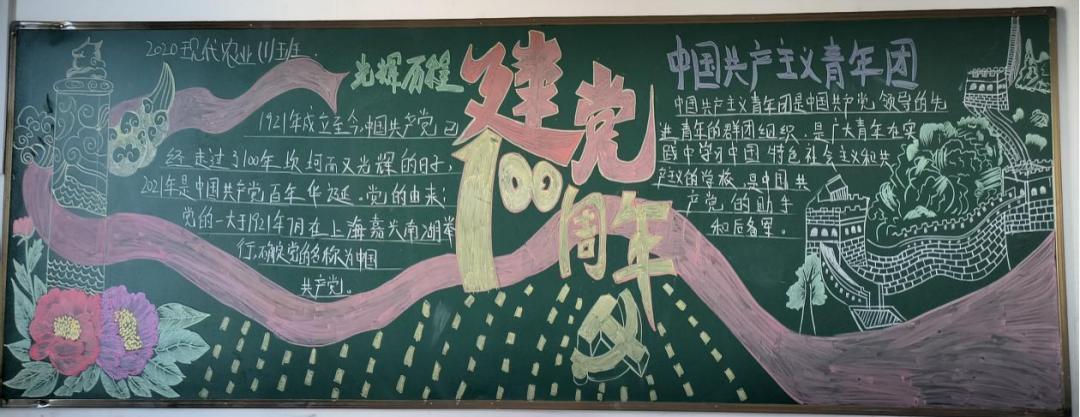 2020现代农业(1)班
光辉历程
1921年成立至今,中国共产党已
经走过了100年坎坷而又光辉的日子,
2021年是中国共产党百年华诞。党的由来:
党的一大于1921年7月在上海嘉兴南湖举
行,确认党的名称为中国
共产党。
建党
100周年
中国共产主义青年团
中国共产主义青年团是中国共产党领导的先
进青年的群团组织,是广大青年在实
践中学习中国特色社会主义和共
产主义的学校,是中国共
产党的助手
和后备军。